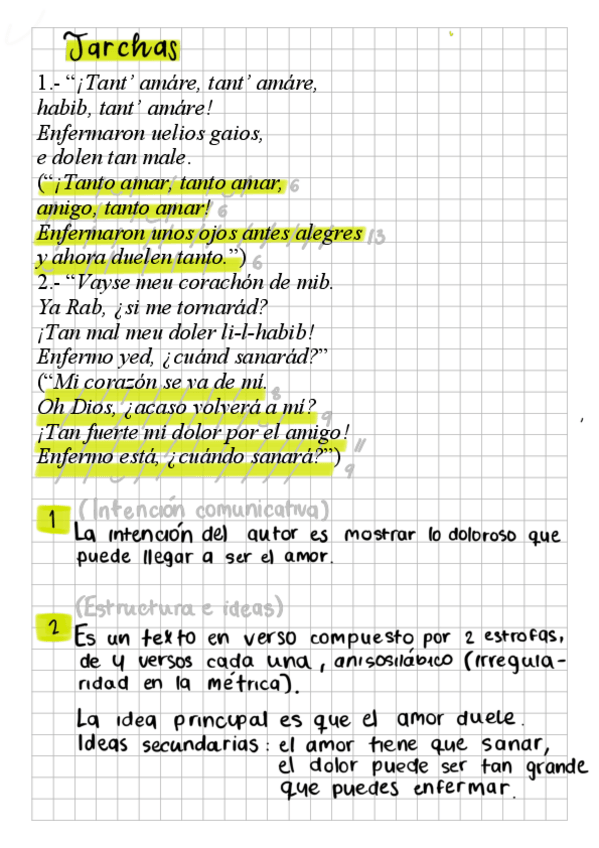 Jarchas
1.- “¡Tant’ amáre, tant’ amáre,
habib, tant’ amáre!
Enfermaron uelios gaios,
e dolen tan male.
(“¡Tanto amar, tanto amar, 6
amigo, tanto amar! 6
Enfermaron unos ojos antes alegres 13
y ahora duelen tanto.”) 6
2.- “Vayse meu corachón de mib.
Ya Rab, ¿si me tornarád?
¡Tan mal meu doler li-l-habib!
Enfermo yed, ¿cuánd sanarád?”
(“Mi corazón se va de mí. 8
Oh Dios, ¿acaso volverá a mí? 9
¡Tan fuerte mi dolor por el amigo! 11
Enfermo está, ¿cuándo sanará?”) 9
1 (Intención comunicativa)
La intención del autor es mostrar lo doloroso que
puede llegar a ser el amor.
(Estructura e ideas)
2 Es un texto en verso compuesto por 2 estrofas,
de 4 versos cada una, anisosilábico (irregula-
ridad en la métrica).
La idea principal es que el amor duele.
Ideas secundarias: el amor tiene que sanar,
el dolor puede ser tan grande
que puedes enfermar.